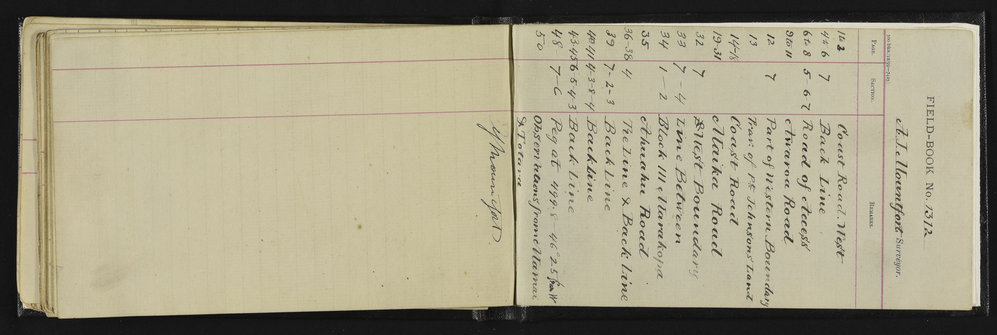 FIELD-BOOK No. 1312
A. J. Mountfort Surveyor.
PAGE. SECTION. REMARKS.
1 to 3 Coast Road. West
4 to 6 7 Back Line
6 to 8 5-6-7 Road of Access
9 to 11 Awaroa Road
12 7 Part of Western Boundary
13 Trav. of Pt Johnsons Land
14-18 Coast Road
19-31 Ataika Road
32 7 West Boundary
33 7-4 Line Between
34 1-2 Block III Marakopa
35 Ahuahu Road
36-38 4 Tie Line & Back Line
39 7-2-3 Back Line
40 41 4-3-8-4 Back Line
43 45 6-5-4-3 Back Line
48 7-6 Peg at 499.8 46 25
50 Observations from
& Totara